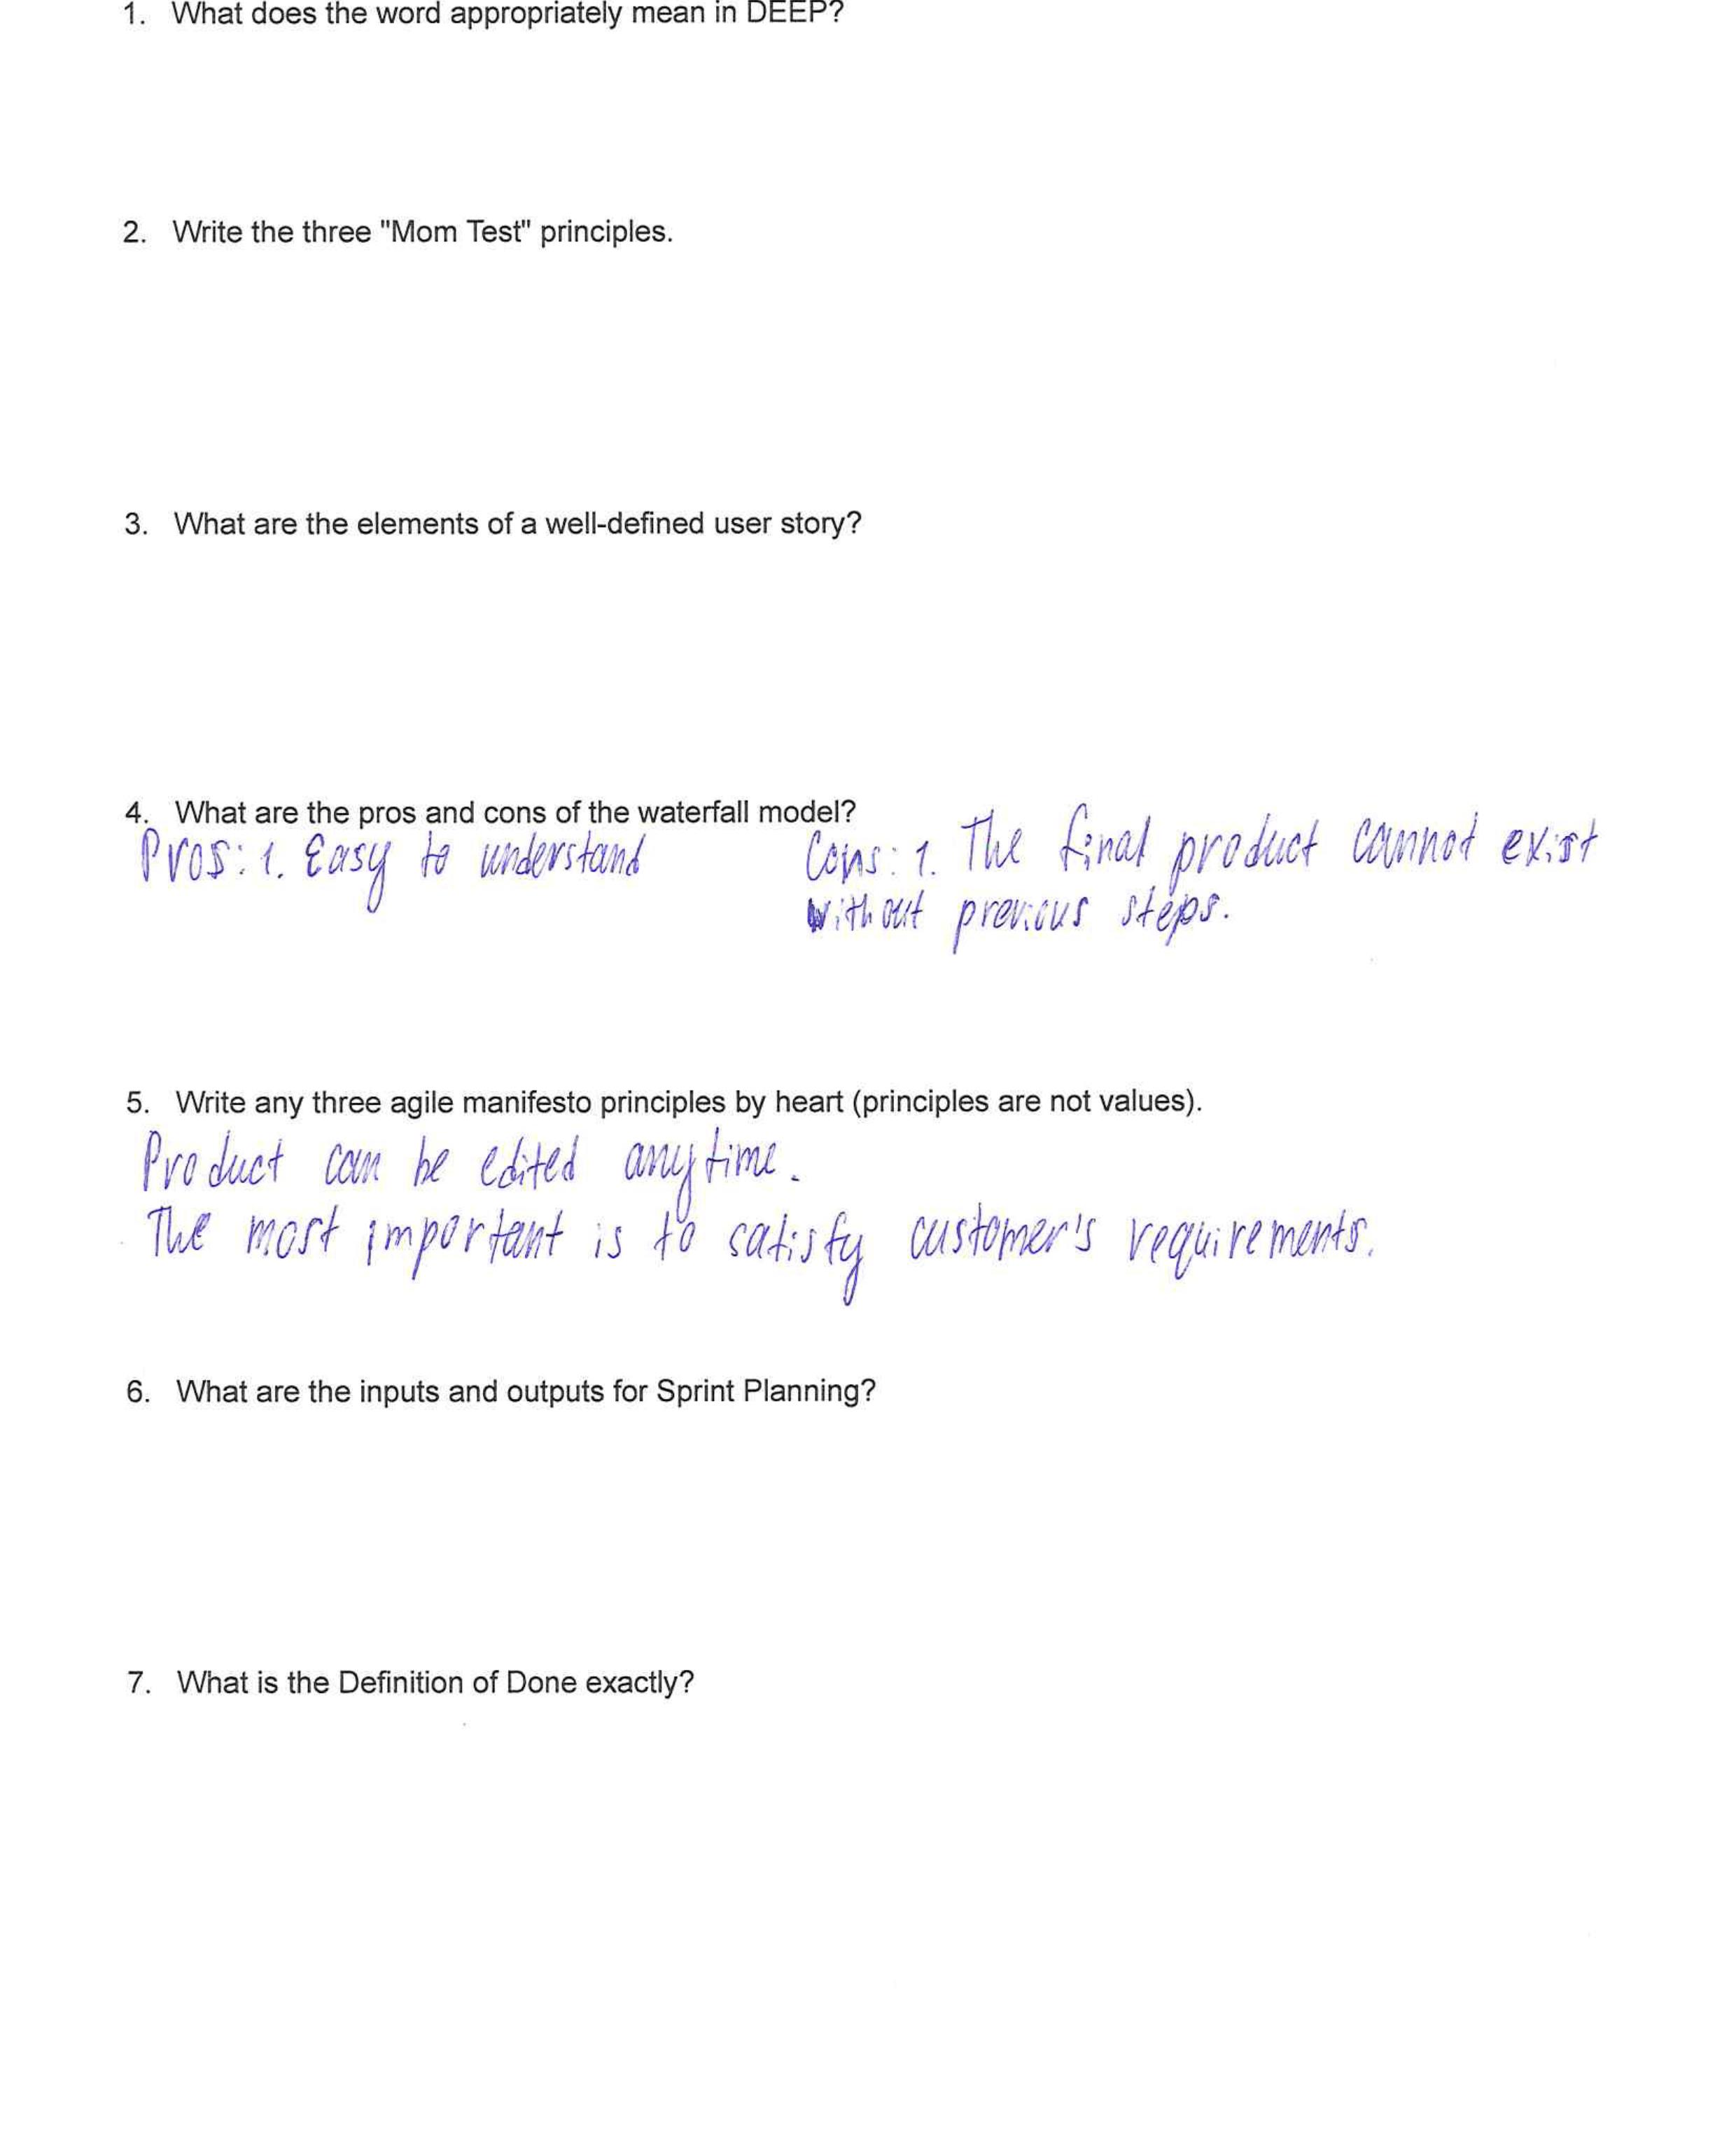 1. What does the word appropriately mean in DEEP?
2. Write the three "Mom Test" principles.
3. What are the elements of a well-defined user story?
4. What are the pros and cons of the waterfall model?
Pros: 1. Easy to understand
Cons: 1. The final product cannot exist
without previous steps.
5. Write any three agile manifesto principles by heart (principles are not values).
Product can be edited anytime.
The most important is to satisfy customer's requirements.
6. What are the inputs and outputs for Sprint Planning?
7. What is the Definition of Done exactly?